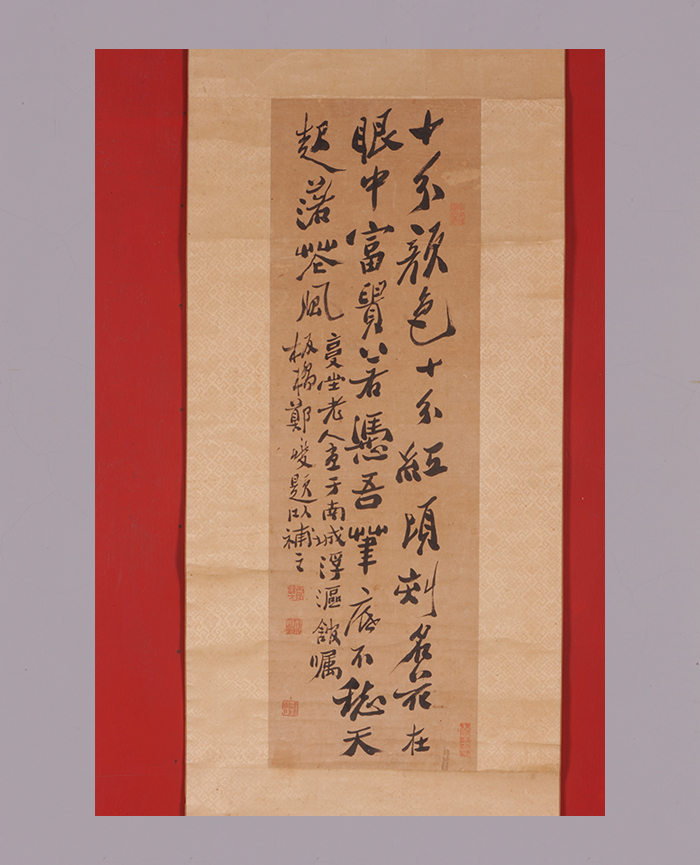 十分顏色十分紅頃刻名花在
眼中富貴若憑吾筆底不愁天
起落花風
老人畫于南城浮漚館囑
板橋鄭燮題以補之